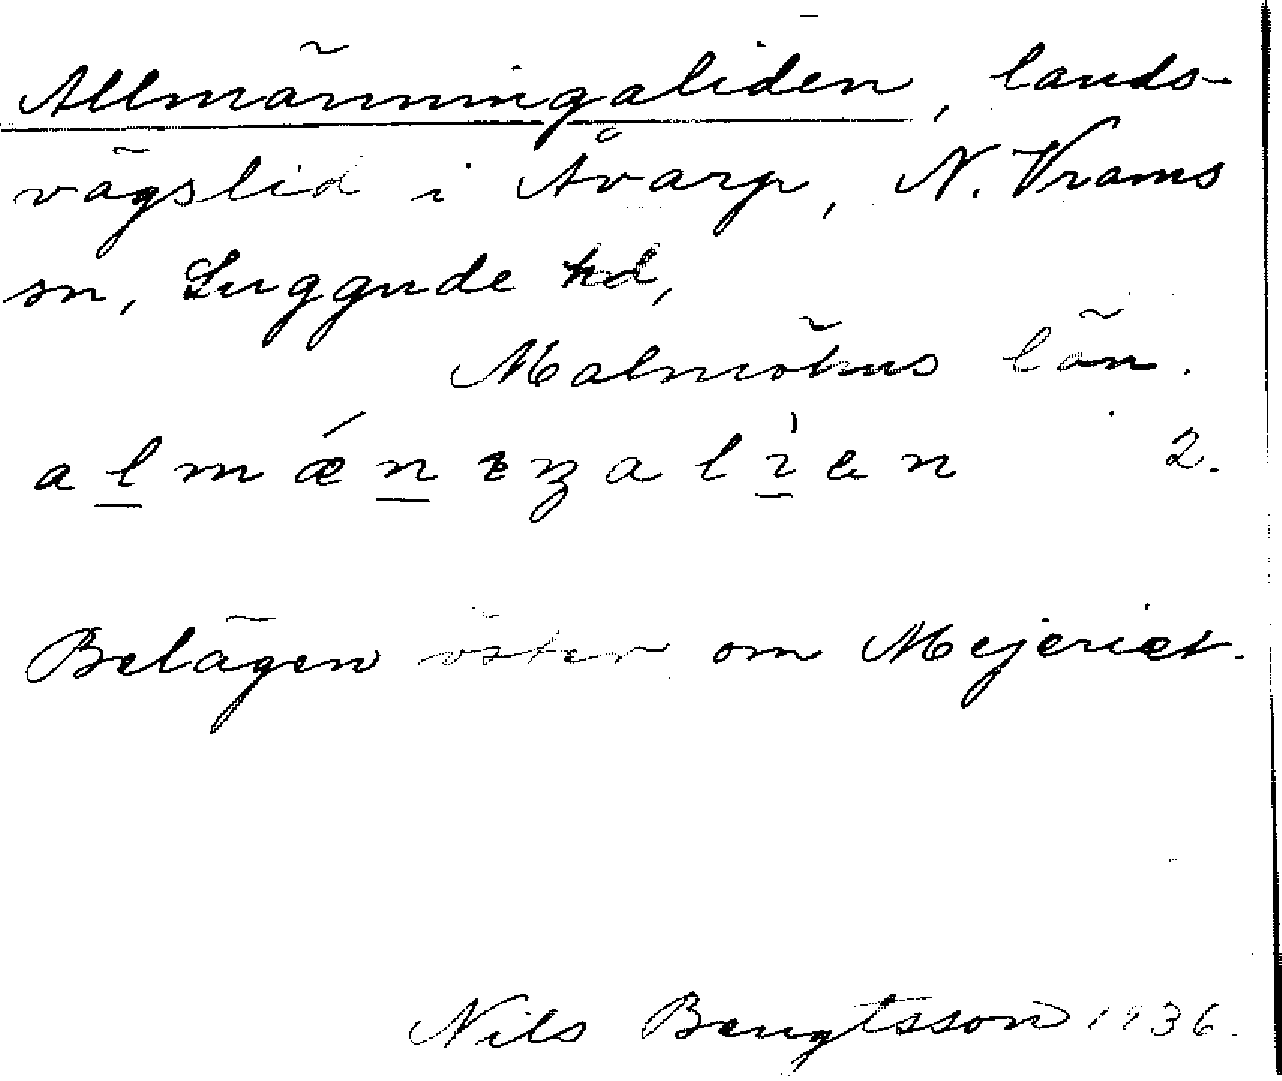 Allmänningaliden, lands-
vägslid i Åvarp, N. Vrams
sn, Luggude hd,
Malmöhus län.
almǽnıŋalìen 2.
Belägen öster om Mejeriet.
Nils Bengtsson 1936.